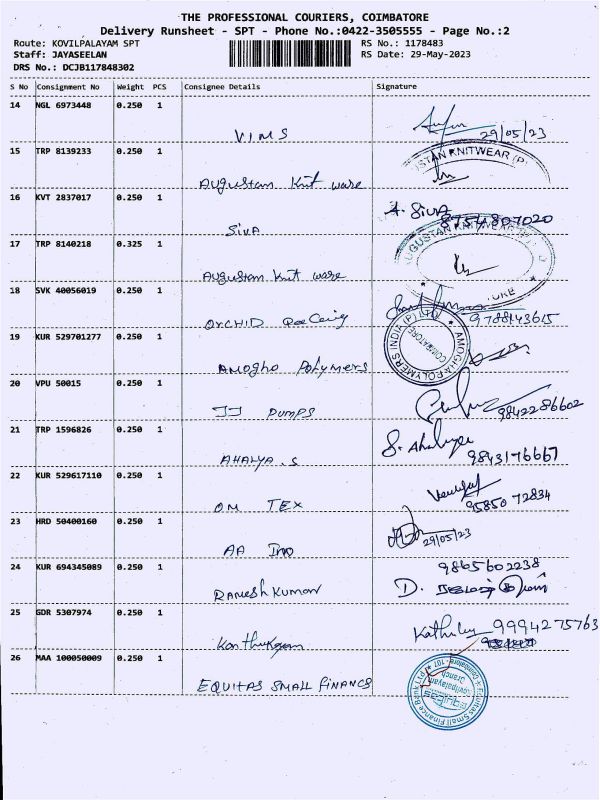 THE PROFESSIONAL COURIERS, COIMBATORE
Delivery Runsheet - SPT - Phone No.:0422-3505555 - Page No.:2
Route: KOVILPALAYAM SPT
RS No.: 1178483
Staff: JAYASEELAN
RS Date: 29-May-2023
DRS No.: DCJB117848302
S No Consignment No Weight PCS Consignee Details Signature
14 NGL 6973448 0.250 1
VIMS
29/05/23
15 TRP 8139233 0.250 1
Augustan Knit ware
STAN KNITWEAR (P)
16 KVT 2837017 0.250 1
SIVA
A. SIVA
8754807020
17 TRP 8140218 0.325 1
Augustan Knit ware
AUGUSTAN KNITWEAR
18 SVK 40056019 0.250 1
ORCHID
9788143615
19 KUR 529701277 0.250 1
Amogha Polymers
AMOGHA POLYMERS INDIA (P) LTD
COIMBATORE
20 VPU 50015 0.250 1
JJ PUMPS
9842286602
21 TRP 1596826 0.250 1
AHALYA.S
S. Ahalya
9843176667
22 KUR 529617110 0.250 1
OM TEX
9585072834
23 HRD 50400160 0.250 1
AA
29/05/23
24 KUR 694345089 0.250 1
Ramesh Kumar
9865602238
D.
25 GDR 5307974 0.250 1
9999275763
26 MAA 100050009 0.250 1
EQUITAS SMALL FINANCE
Equitas Small Finance Bank Ltd
Kovilpalayam
Branch
Coimbatore - 107